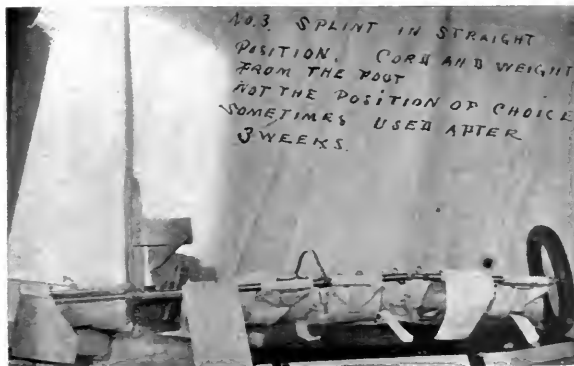 NO.3. SPLINT IN STRAIGHT
POSITION. CORD AND WEIGHT
FROM THE FOOT
NOT THE POSITION OF CHOICE
SOMETIMES USED AFTER
3 WEEKS.